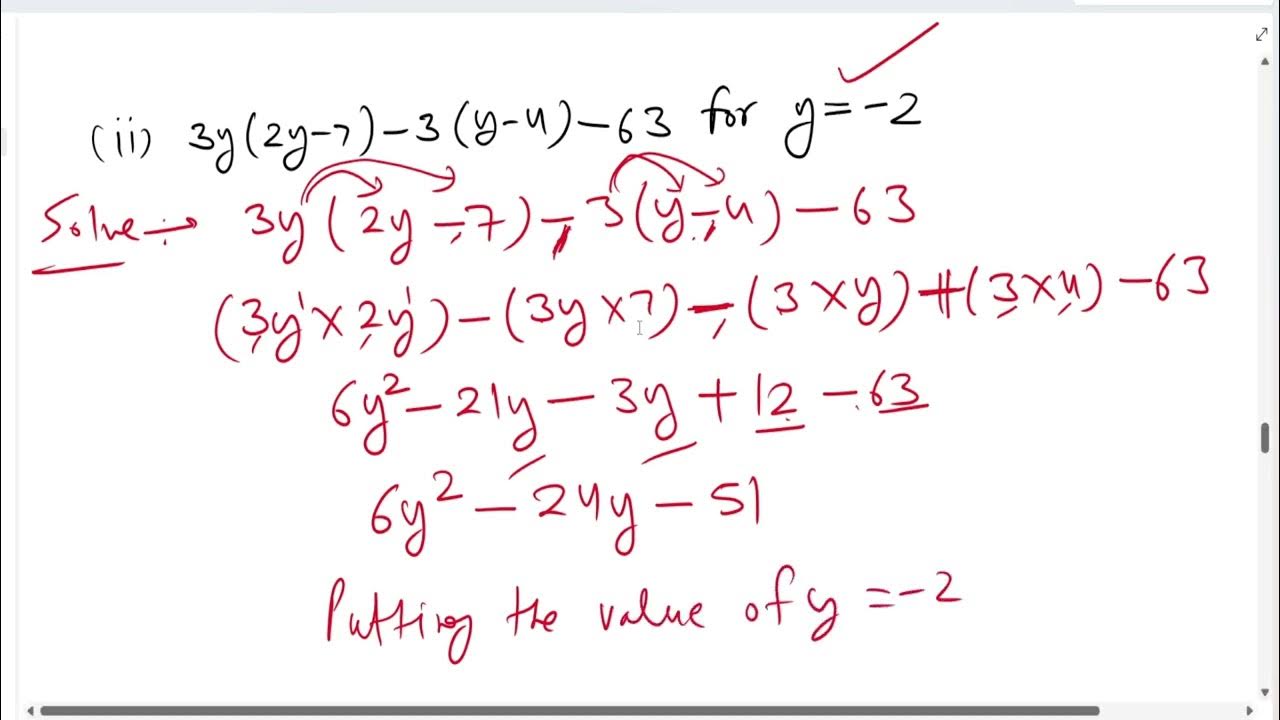 (ii) 3y(2y-7)-3(y-4)-63 for y=-2
Solve:→ 3y(2y-7)-3(y-4)-63
(3y¹×2y¹)-(3y×7)-(3×y)+(3×4)-63
6y²-21y-3y+12-63
6y²-24y-51
Putting the value of y=-2